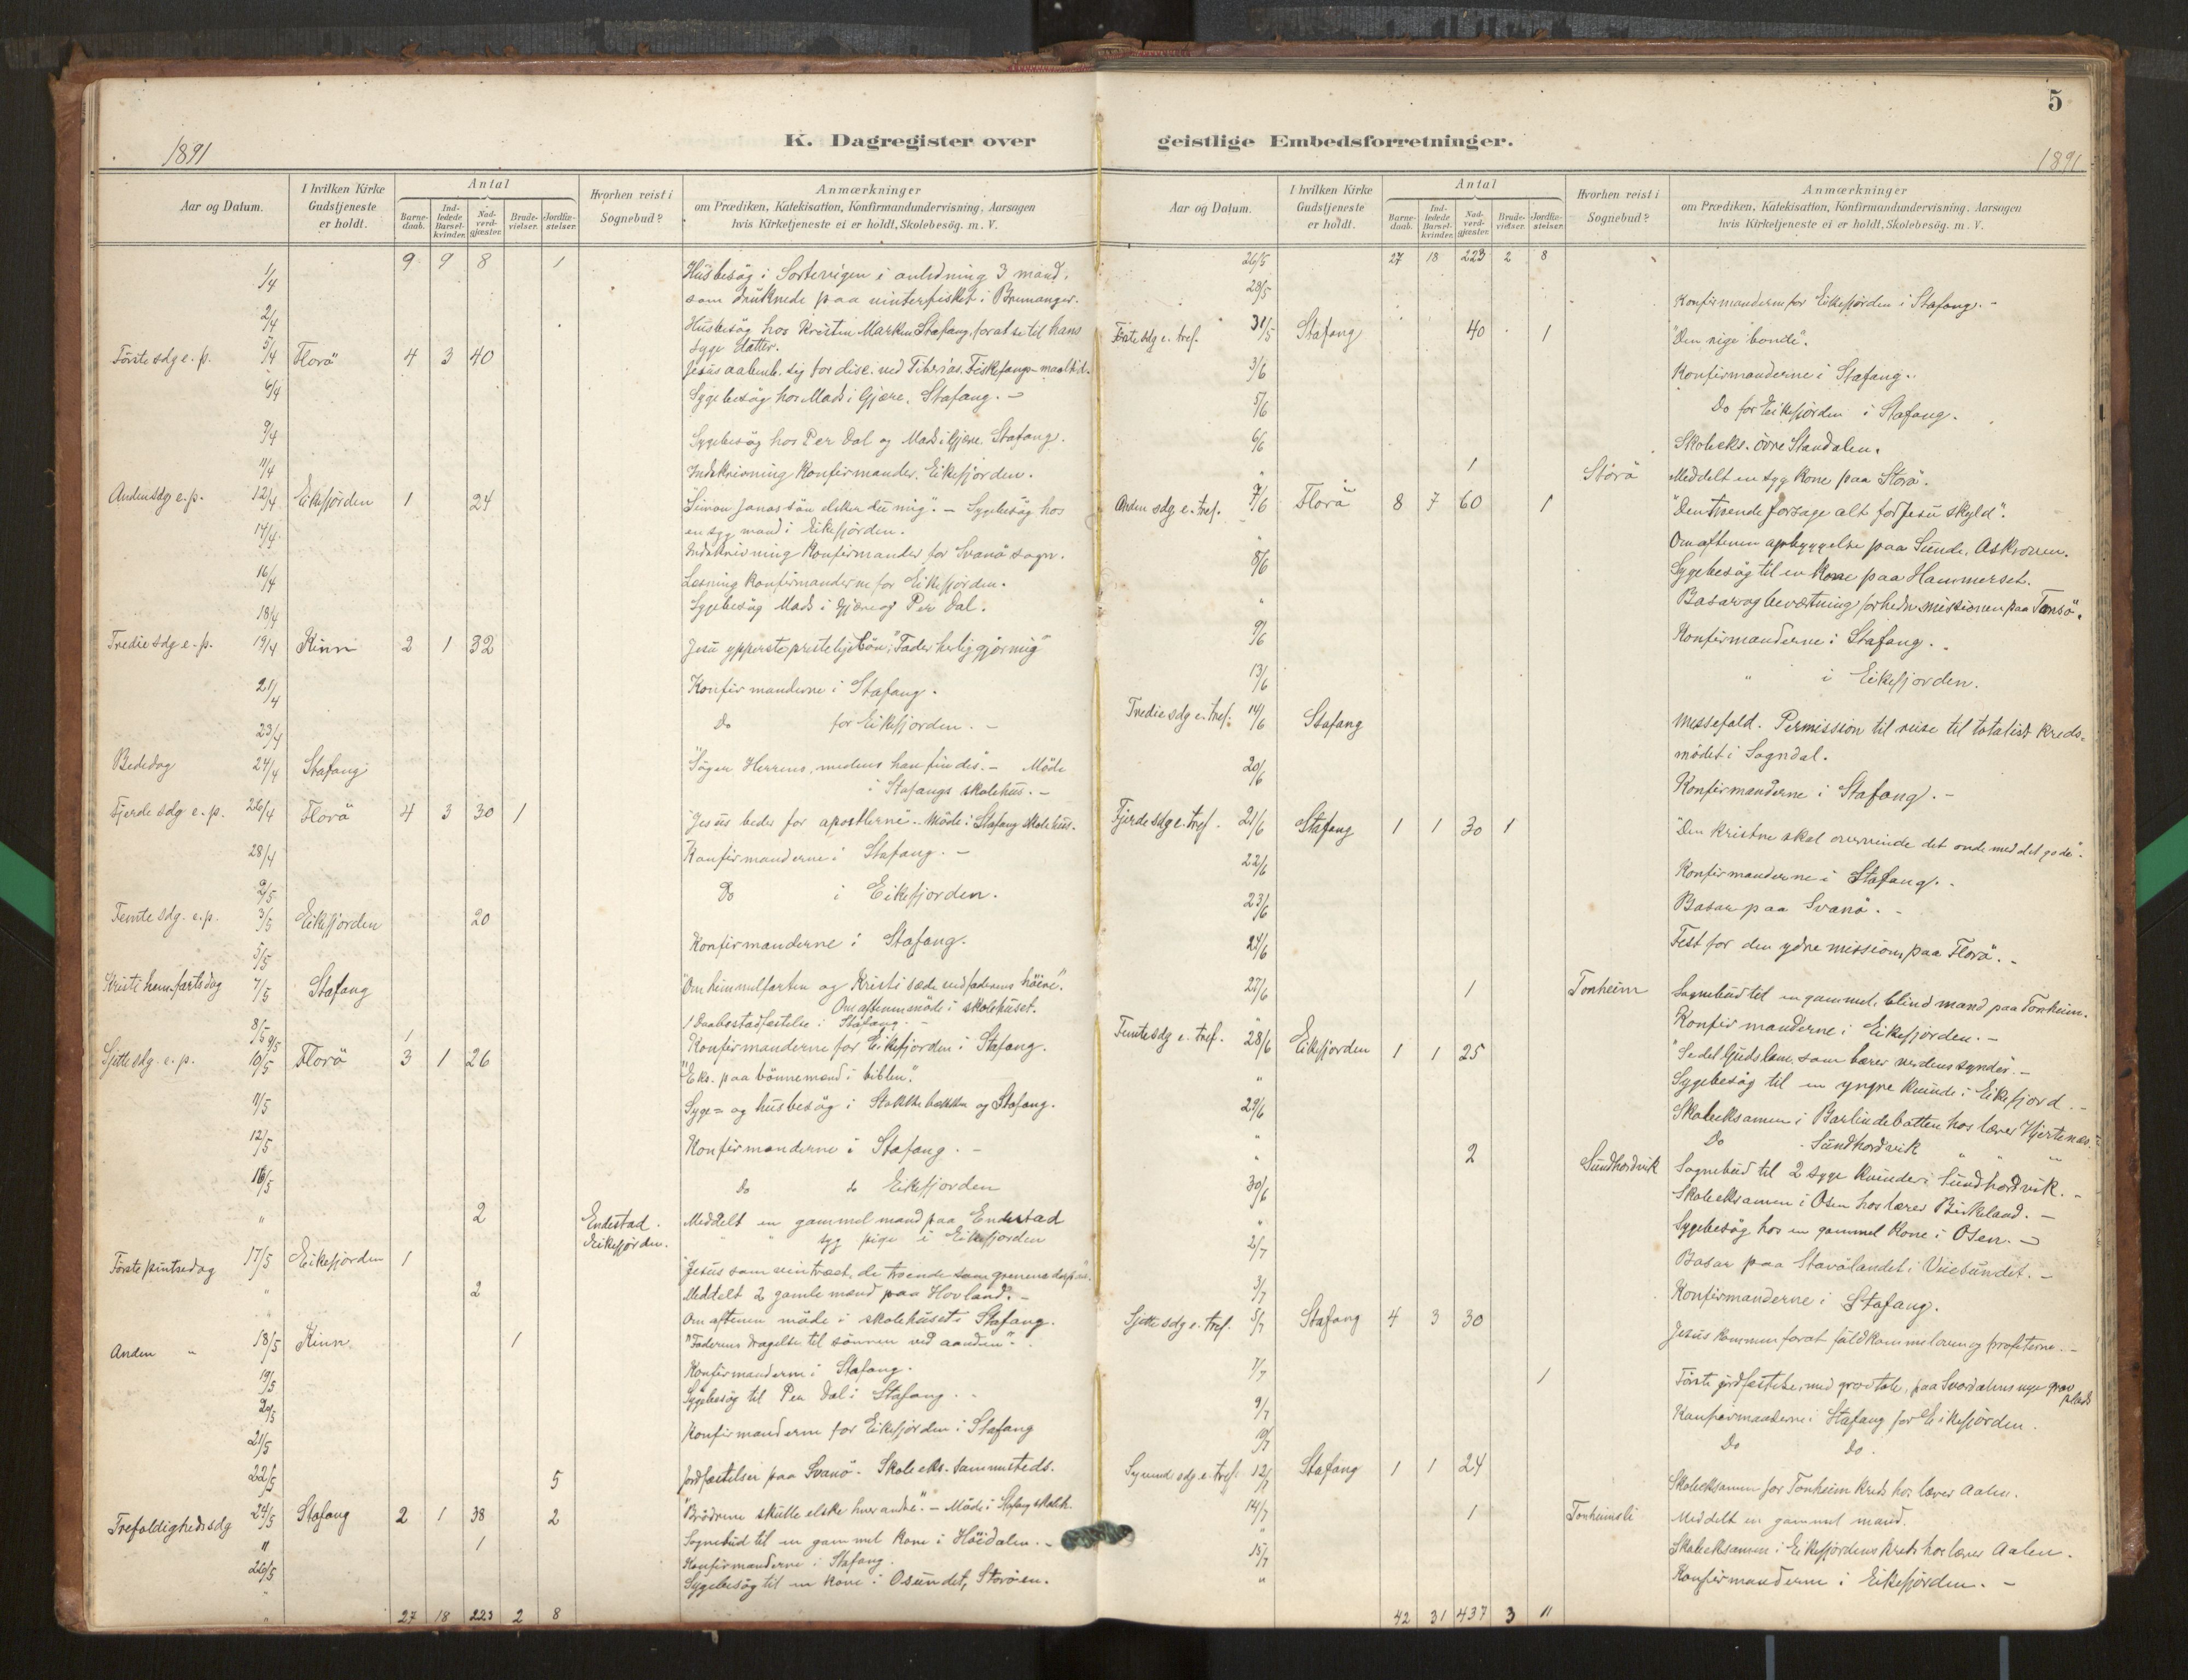 1891
K. Dagregister over
Aar og Datum.
I hvilken Kirke Gudstjeneste er holdt.
Antal
Barne-daab.
Ind-ledede Barsel-kvinder.
Nad-verd-gjæster.
Brude-vielser.
Jordfæ-stelser.
Hvorhen reist i Sognebud?
Anmærkninger
om Prædiken, Katekisation, Konfirmandundervisning, Aarsagen
hvis Kirketjeneste ei er holdt, Skolebesög. m. V.
9 9 8 1
1/4 Husbesög i Sortevigen i anledning 3 mand,
som druknede paa vinterfisket i Bremanger.
2/4 Husbesög hos Kristen Marken Stafang, forat se til hans
syge datter.
Förste sdg e. p. 5/4 Florö 4 3 40 Jesus aabenb. sig for disc. ved Tiberias. Fiskefangs-maaltid.
6/4 Sygebesög hos Mads i Gjære, Stafang. -
9/4 Sygebesög hos Per Dal og Mads i Gjære. Stafang.
11/4 Indskrivning konfirmander. Eikefjorden.
Anden sdg e. p. 12/4 Eikefjorden 1 24 "Simon Jonas sön elsker du mig". - Sygebesög hos
en syg mand i Eikefjorden.
14/4 Indskrivning konfirmander for Svanö sogn.
16/4 Læsning konfirmanderne for Eikefjorden.
18/4 Sygebesög Mads i Gjære og Per Dal.
Tredie sdg e. p. 19/4 Kinn 2 1 32 Jesu ypperstepresteligebön: "Fader herliggjör mig"
21/4 Konfirmanderne i Stafang.
23/4 Do for Eikefjorden. -
Bededag 24/4 Stafang "Söger Herren, medens han findes". - Möde
i Stafangs skolehus. -
Fjerde sdg e. p. 26/4 Florö 4 3 30 1 Jesus beder for apostlerne. - Möde i Stafang skolehus.
28/4 Konfirmanderne i Stafang. -
2/5 Do i Eikefjorden.
Femte sdg. e. p. 3/5 Eikefjorden 20
5/5 Konfirmanderne i Stafang.
Kristi hem.fartsdag 7/5 Stafang "Om himmelfarten og Kristi sæde ved faderens höire".
Om aftenen möde i skolehuset.
1 Daabsstadfæstelse i Stafang. -
8/5 9/5 1 Konfirmanderne for Eikefjorden i Stafang.
Sjette sdg. e. p. 10/5 Florö 3 1 26 "Eks. paa bönnemænd i bibelen".
11/5 Syge= og husbesög i Stokkebækken og Stafang.
12/5 Konfirmanderne i Stafang. -
16/5 do do Eikefjorden
" 2 Endestad. Meddelt en gammel mand paa Endestad
Eikefjorden. " " syg pige i Eikefjorden
Förste pintsedag 17/5 Eikefjorden 1 "Jesus som vintræet, de troende som grenene derpaa".
" 2 Meddelt 2 gamle mænd paa Hovland. -
" Om aftenen möde i skolehuset i Stafang.
Anden " 18/5 Kinn 1 "Faderens dragelse til sönnen ved aanden". -
19/5 Konfirmanderne i Stafang.
20/5 Sygebesög til Per Dal i Stafang. -
21/5 Konfirmanderne for Eikefjorden i Stafang
22/5 5 Jordfæstelser paa Svanö. Skoleeks. sammesteds.
Trefoldigheds sdg 24/5 Stafang 2 1 38 2 "Brödrene skulle elske hverandre". - Möde i Stafang skoleh.
" 1 Sognebud til en gammel kone i Höidalen. -
26/5 Konfirmanderne i Stafang.
" Sygebesög til en kone i Osundet, Storöen.
27 18 223 2 8
5
1891
geistlige Embedsforretninger.
Aar og Datum.
I hvilken Kirke Gudstjeneste er holdt.
Antal
Barne-daab.
Ind-ledede Barsel-kvinder.
Nad-verd-gjæster.
Brude-vielser.
Jordfæ-stelser.
Hvorhen reist i Sognebud?
Anmærkninger
om Prædiken, Katekisation, Konfirmandundervisning, Aarsagen
hvis Kirketjeneste ei er holdt, Skolebesög. m. V.
26/5 27 18 223 2 8
28/5 Konfirmanderne for Eikefjorden i Stafang. -
Förste sdg e. tref. 31/5 Stafang 40 1 "Den rige bonde".
3/6 Konfirmanderne i Stafang.
5/6 Do for Eikefjorden i Stafang.
6/6 Skoleeks. övre Standalen.
" 1 Storö Meddelt en syg kone paa Storö.
Anden sdg. e. tref. 7/6 Florö 8 7 60 1 "Den troende forsage alt for Jesu skyld".
" Om aftenen opbyggelse paa Sunde, Askroven.
8/6 Sygebesög til en kone paa Hammerset.
" Basar og bevertning for hednemissionen paa Tansö.
9/6 Konfirmanderne i Stafang.
13/6 " i Eikefjorden.
Tredie sdg e. tref. 14/6 Stafang Messefald. Permission til reise til totalist kreds-
mödet i Sogndal.
20/6 Konfirmanderne i Stafang. -
Fjerde sdg e. tref. 21/6 Stafang 1 1 30 1 "Den kristne skal overvinde det onde med det gode".
22/6 Konfirmanderne i Stafang.
23/6 Basar paa Svanö. -
24/6 Fest for den ydre mission paa Florö. -
27/6 1 Tonheim Sognebud til en gammel, blind mand paa Tonheim.
" Konfirmanderne i Eikefjorden. -
Femte sdg e. tref. 28/6 Eikefjorden 1 1 25 "Se det Guds lam, som bærer verdens synder. -
" Sygebesög til en yngre kvinde i Eikefjord. -
29/6 Skoleeksamen i Barlindebotten hos lærer Hjertenæs.
" Do Sundhordvik " "
" 2 Sundhordvik Sognebud til 2 syge kvinder i Sundhordvik. -
30/6 Skoleeksamen i Osen hos lærer Birkeland. -
" Sygebesög hos en gammel kone i Osen. -
2/7 Basar paa Stavölandet i Viiesundet. -
3/7 Konfirmanderne i Stafang.
Sjette sdg e. tref. 5/7 Stafang 4 3 30 Jesus kommen forat fuldkomme loven og profeterne. -
7/7 1 Förste jordfæstelse, med gravtale, paa Svardalens nye grav
plads
9/7 Konfirmanderne i Stafang for Eikefjorden.
10/7 Do Do.
Syvende sdg e. tref. 12/7 Stafang 1 1 24
14/7 Skoleeksamen for Tonheim kreds hos lærer Aalen.
" 1 Tonheimsli Meddelt en gammel mand.
15/7 Skoleeksamen i Eikefjordens kreds hos lærer Aalen.
" Konfirmanderne i Eikefjorden. -
42 31 437 3 11